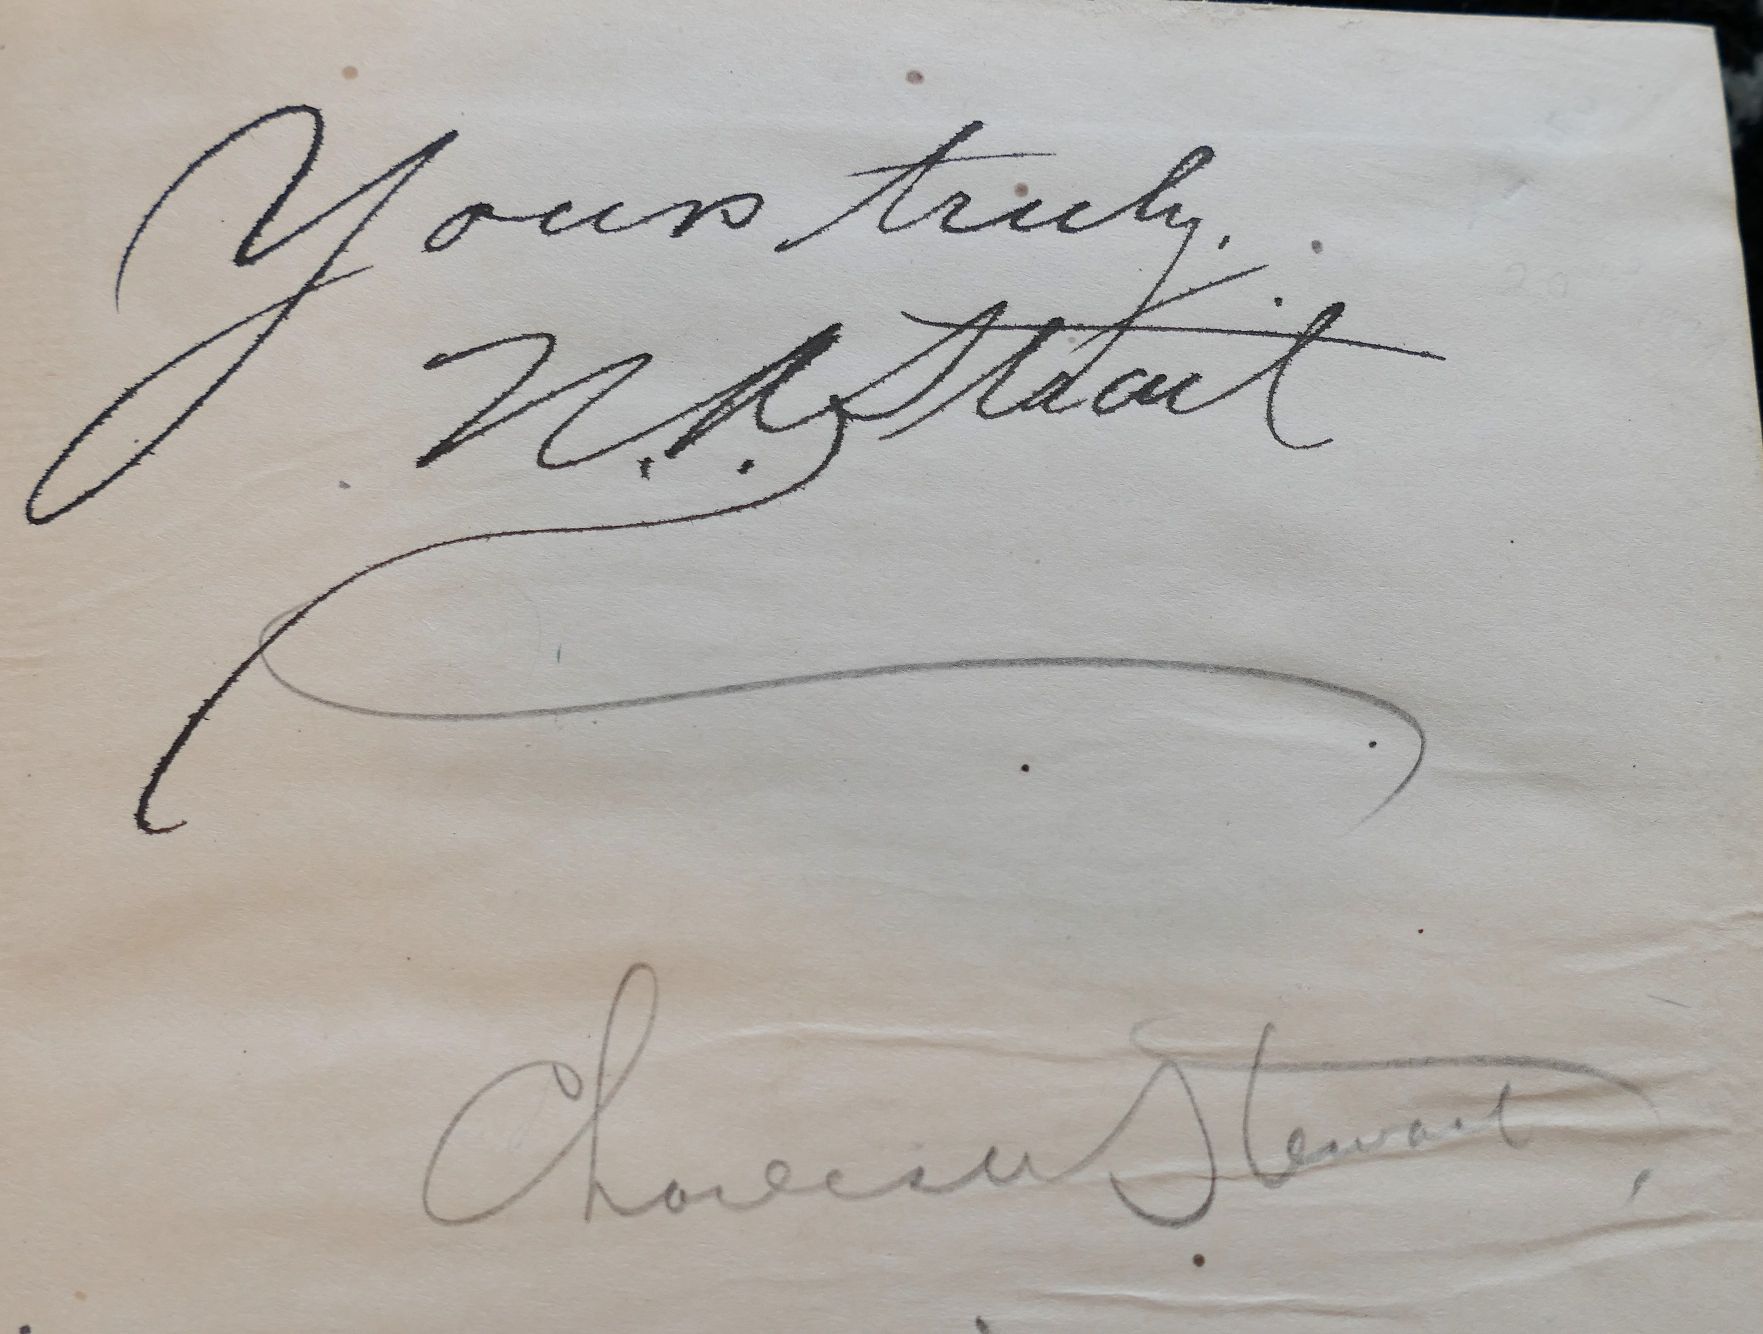 Yours truly,
N. A. Stewart
Stewart,